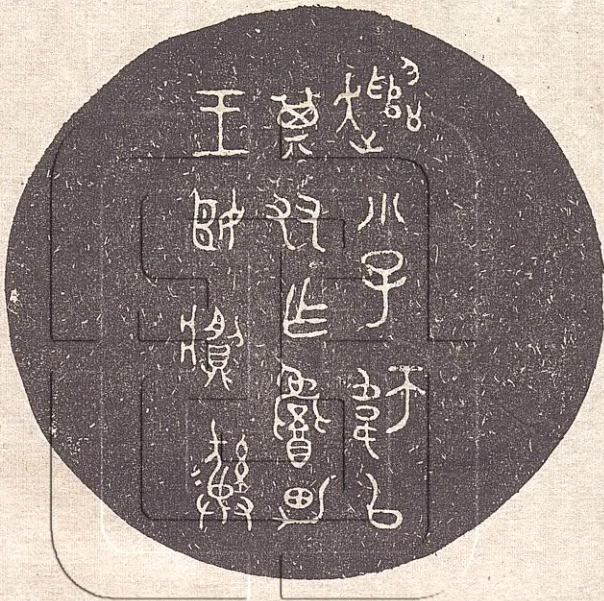 趞小子以
其友作魯男
王姬䵼彝